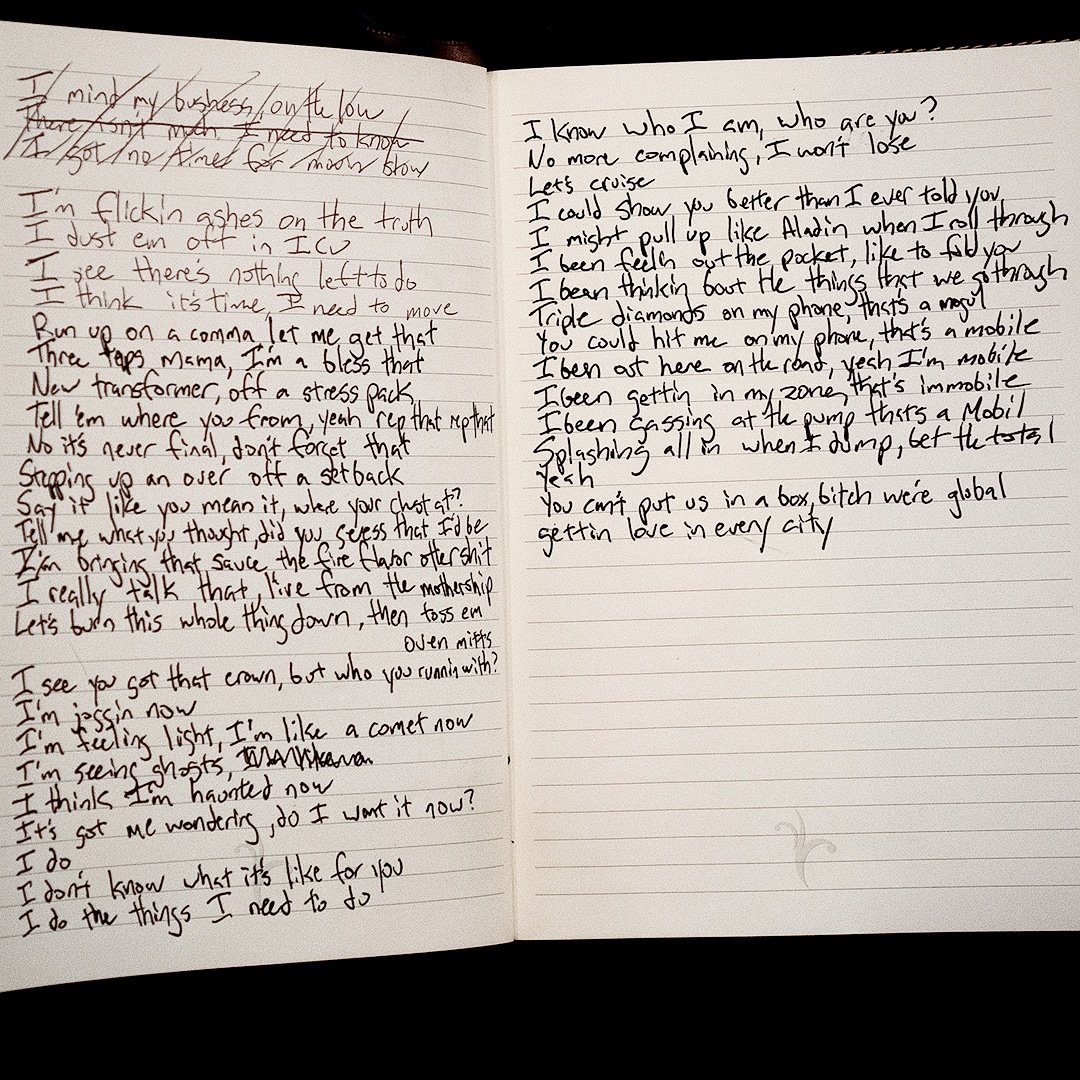 I mind my business, on the low
There isn't much I need to know
I got no time for movin slow
I'm flickin ashes on the truth
I dust em off in ICU
I see there's nothing left to do
I think it's time, I need to move
Run up on a comma let me get that
Three taps mama, I'm a bless that
New transformer, off a stress pack
Tell 'em where you from, yeah rep that rep that
No it's never final, don't forget that
Stepping up an over off a setback
Say it like you mean it, where your chest at?
Tell me what you thought, did you guess that I'd be
I'm bringing that sauce the fire flavor other shit
I really talk that, live from the mothership
Let's burn this whole thing down, then toss em
oven mitts
I see you got that crown, but who you runnin with?
I'm joggin now
I'm feeling light, I'm like a comet now
I'm seeing ghosts,
I think I'm haunted now
It's got me wondering, do I want it now?
I do
I don't know what it's like for you
I do the things I need to do
I know who I am, who are you?
No more complaining, I won't lose
Let's cruise
I could show you better than I ever told you
I might pull up like Aladin when I roll through
I been feelin out the pocket, like to fold you
I been thinkin bout the things that we go through
Triple diamonds on my phone, that's a mogul
You could hit me on my phone, that's a mobile
I been out here on the road, yeah I'm mobile
I been gettin in my zone, that's immobile
I been gassing at the pump that's a Mobil
Splashing all in when I dump, bet the total
Yeah
You can't put us in a box, bitch we're global
gettin love in every city